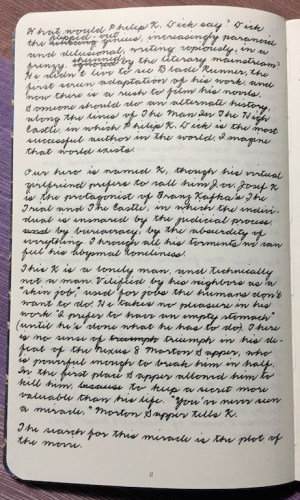 What would Philip K. Dick say? Dick
the flipped-out genius, increasingly paranoid
and delusional, writing copiously, in a
frenzy. shunned by the literary mainstream?
He didn't live to see Blade Runner, the
first screen adaptation of his work, and
now there is a rush to film his novels.
Someone should do an alternate history,
along the lines of The Man In The High
Castle, in which Philip K. Dick is the most
successful author in the world. I imagine
that world exists.
Our hero is named K, though his virtual
girlfriend prefers to call him Joe. Josef K
is the protagonist of Franz Kafka's The
Trial and The Castle, in which the indivi-
dual is ensnared by the judicial process,
by bureaucracy, by the absurdity of
everything. Through all his torments we can
feel his abysmal loneliness.
This K is a lonely man, and technically
not a man. Vilified by his neighbors as a
"skin job," used for jobs the humans don't
want to do. He takes no pleasure in his
work. "I prefer to have an empty stomach"
(until he's done what he has to do). There
is no sense of triumph in his de-
feat of the Nexus 8 Morton Sapper, who
is powerful enough to break him in half.
In the first place Sapper allowed him to
kill him, because to keep a secret more
valuable than his life. "You've never seen
a miracle." Morton Sapper tells K.
The search for this miracle is the plot of
the movie.
2